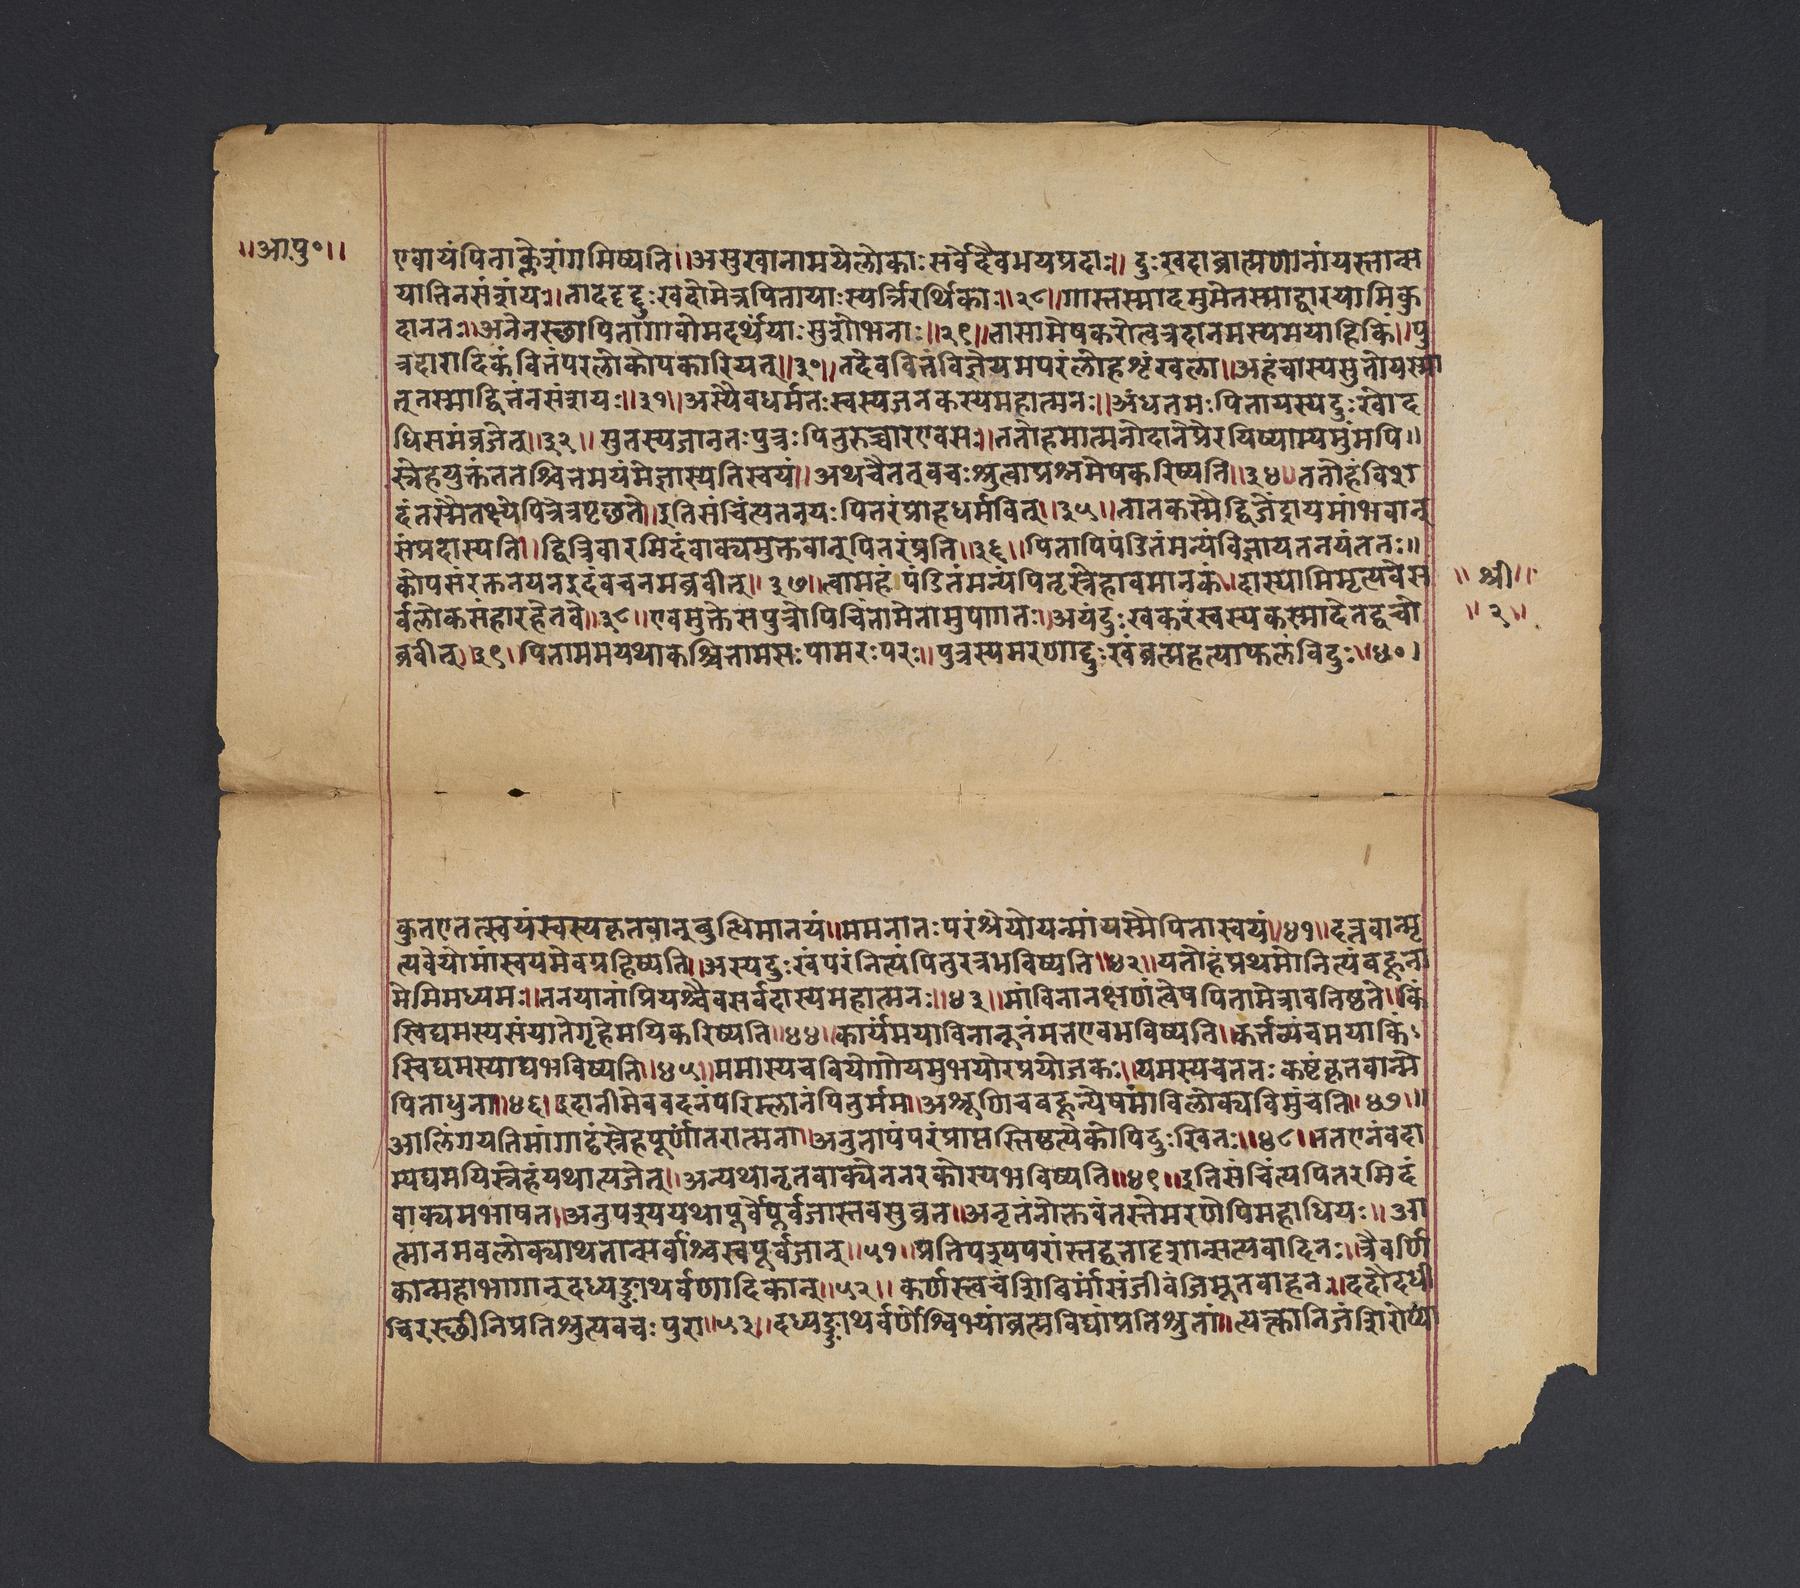 ॥आ॰पु॰॥
एवायंपिताक्लेशंगमिष्यति॥असुखानामयेलोकाःसर्वेदैवभयप्रदाः॥दुःखदाब्राह्मणानांयस्तान्स
यातिनसंशयः॥तादददृदुःखदामेत्रपितायाःस्यर्न्निरर्थिकाः॥२८॥गास्तस्मादमुमेतस्माद्वारयामिकु
दानतः॥अनेनस्छापितागावोमदर्थंयाःसुशोभनाः॥२९॥तासामेषकरोत्वत्रदानमस्यमयाहिकिं॥पु
त्रदारादिकंवित्तंपरलोकोपकारियत्॥३०॥तदेववित्तंविज्ञेयमपरंलोहशृंखला॥अहंचास्यसुतोयस्मा
त्ततस्माद्वित्तंनसंशयः॥३१॥अस्यैवधर्मतःस्वस्यजनकस्यमहात्मनः॥अंधतमःपितायस्यदुःखोद
धिसमंव्रजेत्॥३२॥सुतस्यजानतःपुत्रःपितुरुच्चारएवसः॥ततोहमात्मनोदानेप्रेरयिष्याम्यमुंमपि॥
स्नेहयुक्तंततश्चित्तमयंमेज्ञास्यतिस्वयं॥अथचैतत्वचःश्रुत्वाप्रश्नमेषकरिष्यति॥३४॥ततोहंविश
दंतस्मैतक्ष्येपित्रेत्रपृछते॥इतिसंचिंत्यतनयःपितरंप्राहधर्मवित्॥३५॥तातकस्मैद्विजेंद्रायमांभवान्
संप्रदास्यति॥द्वित्रिवारमिदंवाक्यमुक्तवान्पितरंप्रति॥३६॥पितापिपंडितंमन्यंविज्ञायतनयंततः॥
कोपसंरक्तनयनइदंवचनमब्रवीत्॥३७॥त्वामहंपंडितंमन्यंपितृस्नेहावमानकं॥दास्यामिमृत्यवेस
॥श्री॥
र्वलोकसंहारहेतवे॥३८॥एवमुक्तेसपुत्रोपिचिंतामेतामुपागतः॥अयंदुःखकरंस्वस्यकस्मादेतद्वचो
॥२॥
ब्रवीत्॥३९॥पिताममयथाकश्चित्तामसःपामरःपरः॥पुत्रस्यमरणाद्दुःखंब्रह्महत्याफलंविदुः॥४०।
कुतएतत्स्वयंस्वस्यकृतवान्बुद्धिमानयं॥ममनातःपरंश्रेयोयन्मांयस्मैपितास्वयं॥४१॥दत्तवान्मृ
त्यवेयोमांस्वयमेवग्रहिष्यति॥अस्यदुःखंपरंनित्यंपितुरत्रभविष्यति॥४२॥यतोहंप्रथमोनित्यंबहूना
मेमिमध्यमः॥तनयानांप्रियश्चैवसर्वदास्यमहात्मनः॥४३॥मांविनानक्षणंत्वेषपितामेत्रावतिष्ठते॥किं
स्विद्यमस्यसंयातेगृहेमयिकरिष्यति॥४४॥कार्यंमयाविनानूनंमत्तएवभविष्यति॥कर्त्तव्यंचमयाकिं
स्विद्यमस्याद्यभविष्यति॥४५॥ममास्यचवियोगोयमुभयोरप्रयोजकः॥यमस्यचततःकष्टंकृतवान्मे
पिताधुना॥४६॥इदानीमेववदनंपरिम्लानंपितुर्मम॥अश्रूणिचबहून्येषमांविलोक्यविमुंचति॥४७॥
आलिंगयतिमांगाढंस्नेहपूर्णांतरात्मना॥अनुतापंपरंप्राप्तस्तिष्ठत्येकोपिदुःखितः॥४८॥ततएनंवदा
म्यद्यमयिस्नेहंयथात्यजेत्॥अन्यथानृतवाक्येननरकोस्यभविष्यति॥४९॥इतिसंचिंत्यपितरमिदं
वाक्यमभाषत॥अनुपश्ययथापूर्वेपूर्वजास्तवसुव्रत॥अनृतंनोक्तवंतस्तेमरणेपिमहाधियः॥आ
त्मानमवलोक्याथतान्सर्वांश्चस्वपूर्वजान्॥५१॥प्रतिपश्यपरांस्तद्वत्तादृशान्सत्यवादिनः॥त्रैवर्णि
कान्महाभागान्दध्यङ्ङाथर्वणादिकान्॥५२॥कर्णस्त्वचंशिबिर्मांसंजीवंजिमूतवाहनः॥ददौदधी
चिरस्छीनिप्रतिश्रुत्यवचःपुरा॥५३॥दध्यङ्ङाथर्वणोश्विभ्यांब्रह्मविद्यांप्रतिश्रुतां॥त्यक्त्वानिजंशिरोप्या